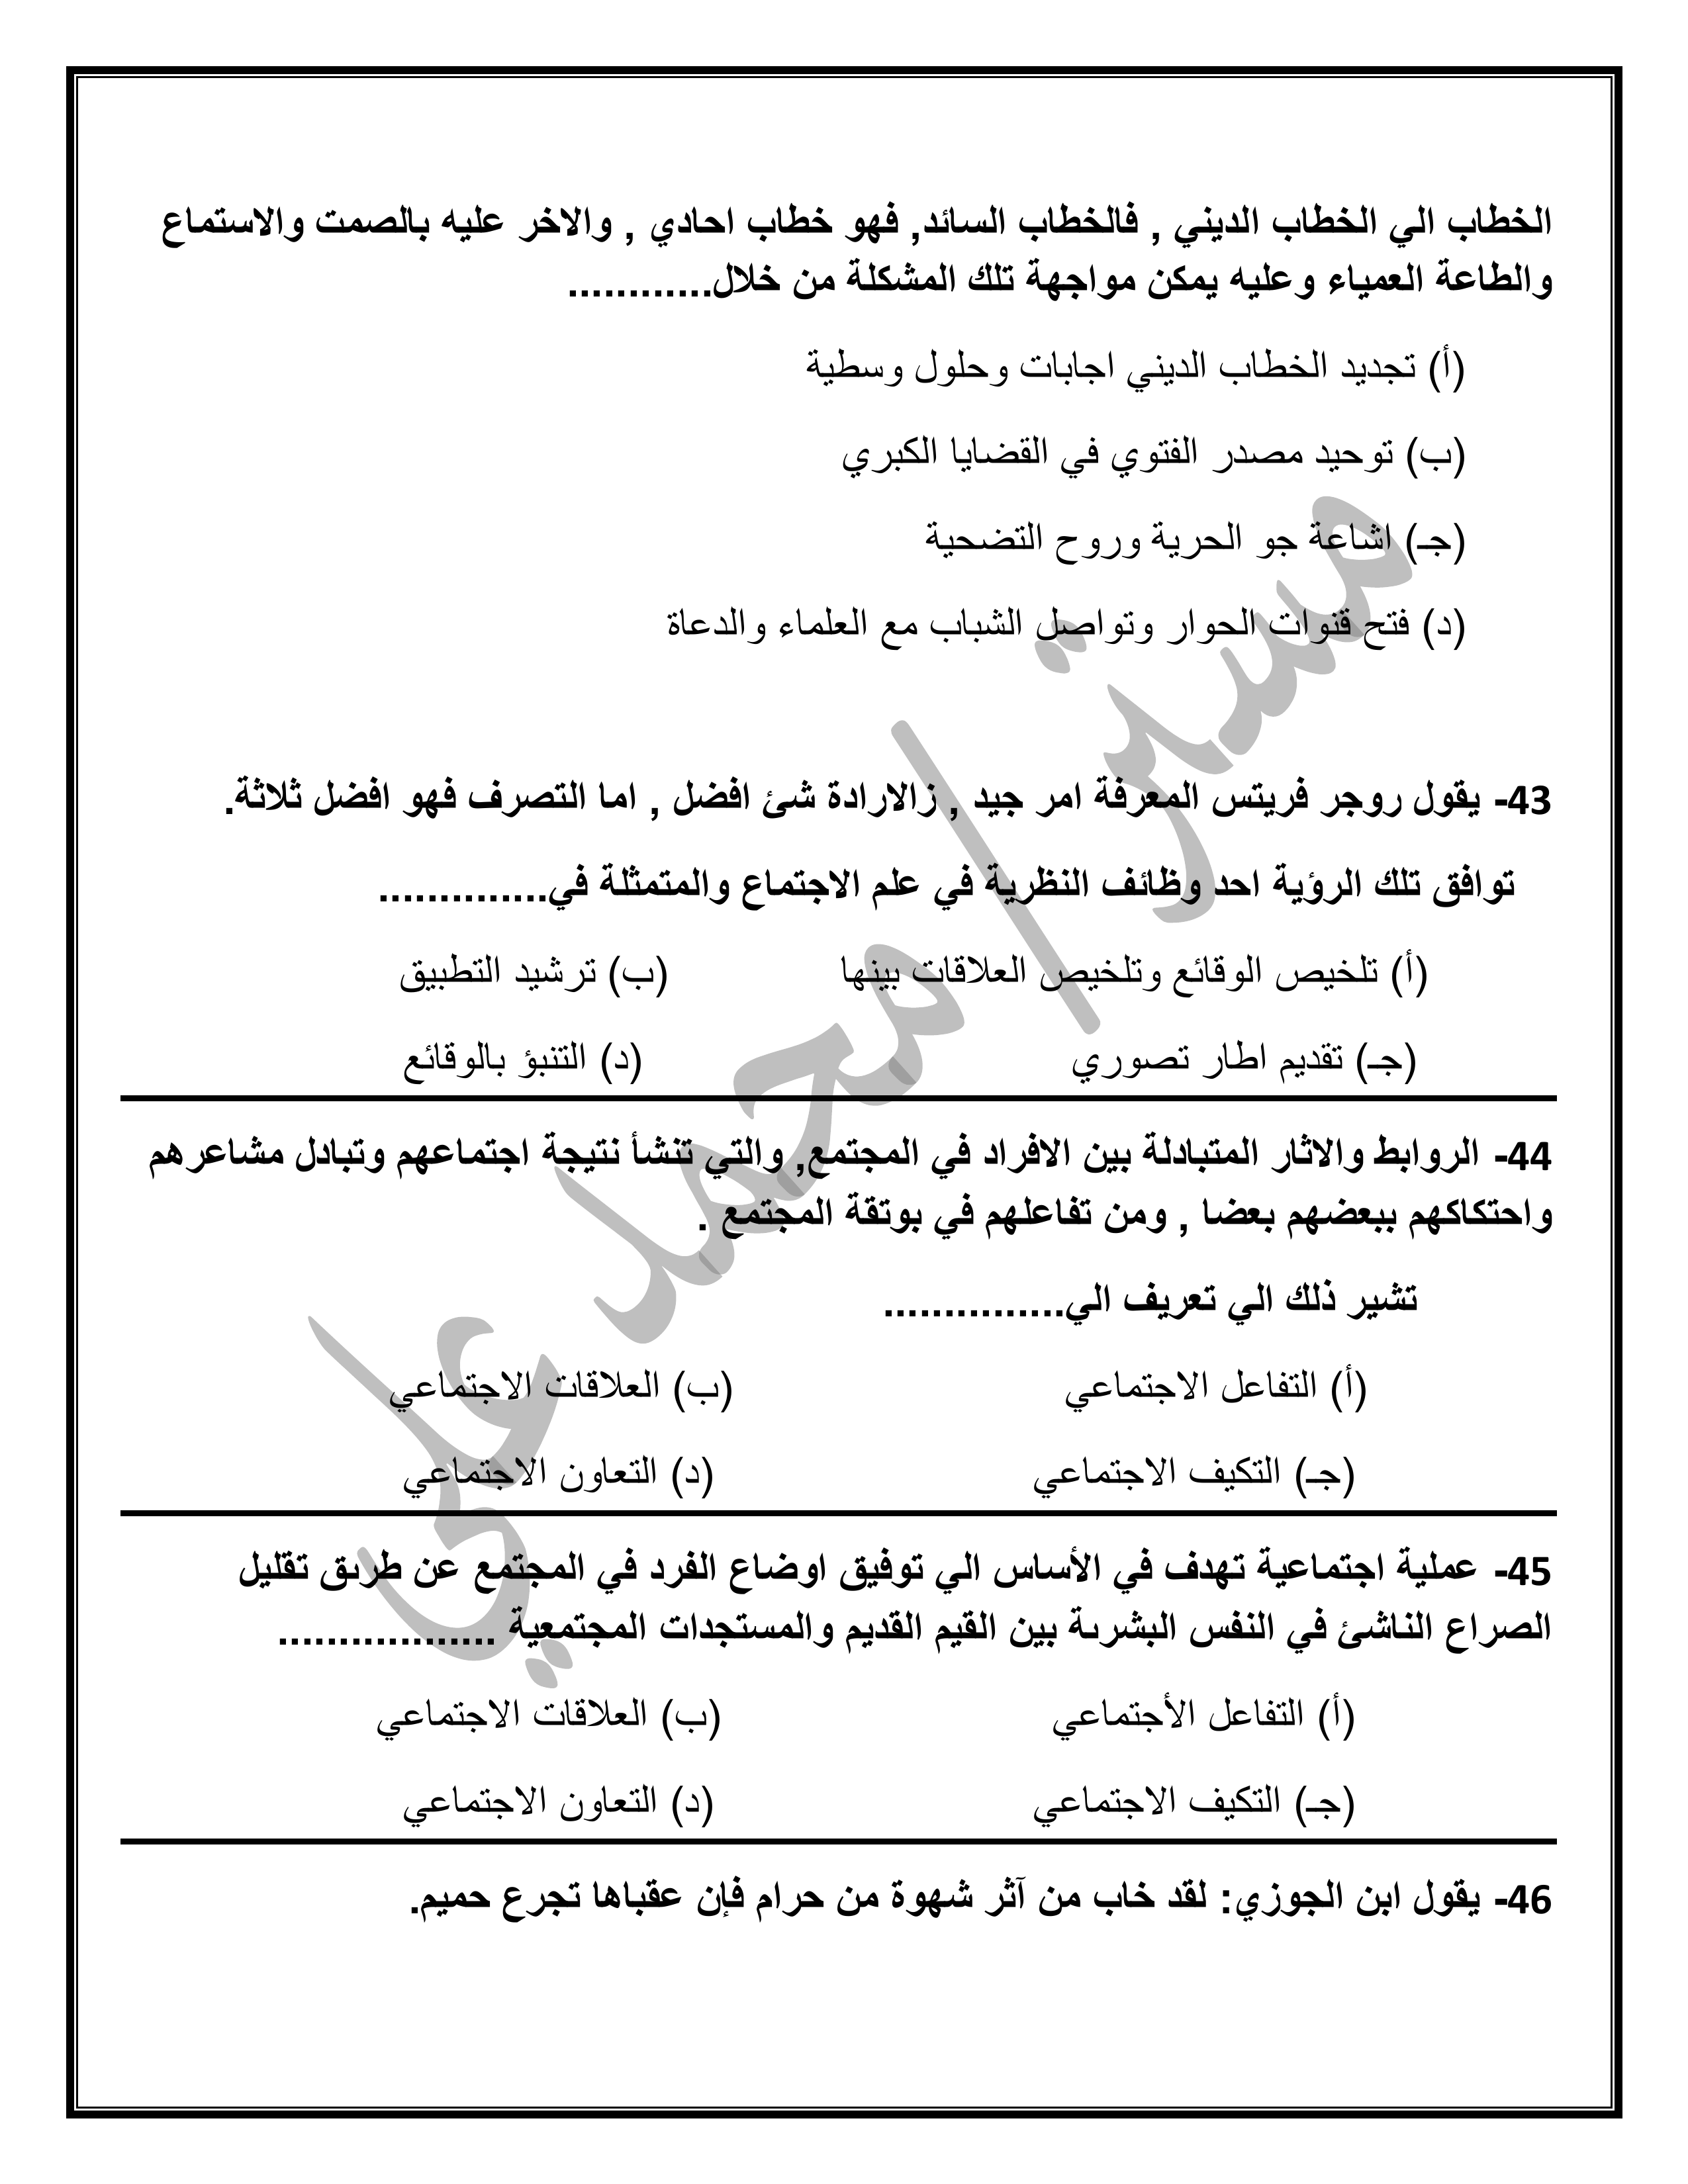 الخطاب الي الخطاب الديني , فالخطاب السائد, فهو خطاب احادي , والاخر عليه بالصمت والاستماع
والطاعة العمياء وعليه يمكن مواجهة تلك المشكلة من خلال............
(أ) تجديد الخطاب الديني اجابات وحلول وسطية
(ب) توحيد مصدر الفتوي في القضايا الكبري
(جـ) اشاعة جو الحرية وروح التضحية
(د) فتح قنوات الحوار وتواصل الشباب مع العلماء والدعاة
43- يقول روجر فريتس المعرفة امر جيد , زالارادة شئ افضل , اما التصرف فهو افضل ثلاثة.
توافق تلك الرؤية احد وظائف النظرية في علم الاجتماع والمتمثلة في..............
(أ) تلخيص الوقائع وتلخيص العلاقات بينها (ب) ترشيد التطبيق
(جـ) تقديم اطار تصوري (د) التنبؤ بالوقائع
44- الروابط والاثار المتبادلة بين الافراد في المجتمع, والتي تنشأ نتيجة اجتماعهم وتبادل مشاعرهم
واحتكاكهم ببعضهم بعضا , ومن تفاعلهم في بوتقة المجتمع .
تشير ذلك الي تعريف الي...............
(أ) التفاعل الاجتماعي (ب) العلاقات الاجتماعي
(جـ) التكيف الاجتماعي (د) التعاون الاجتماعي
45- عملية اجتماعية تهدف في الأساس الي توفيق اوضاع الفرد في المجتمع عن طرىق تقليل
الصراع الناشئ في النفس البشرىة بين القيم القديم والمستجدات المجتمعية ..................
(أ) التفاعل الأجتماعي (ب) العلاقات الاجتماعي
(جـ) التكيف الاجتماعي (د) التعاون الاجتماعي
46- يقول ابن الجوزي: لقد خاب من آثر شهوة من حرام فإن عقباها تجرع حميم.
مستر/محمد علي